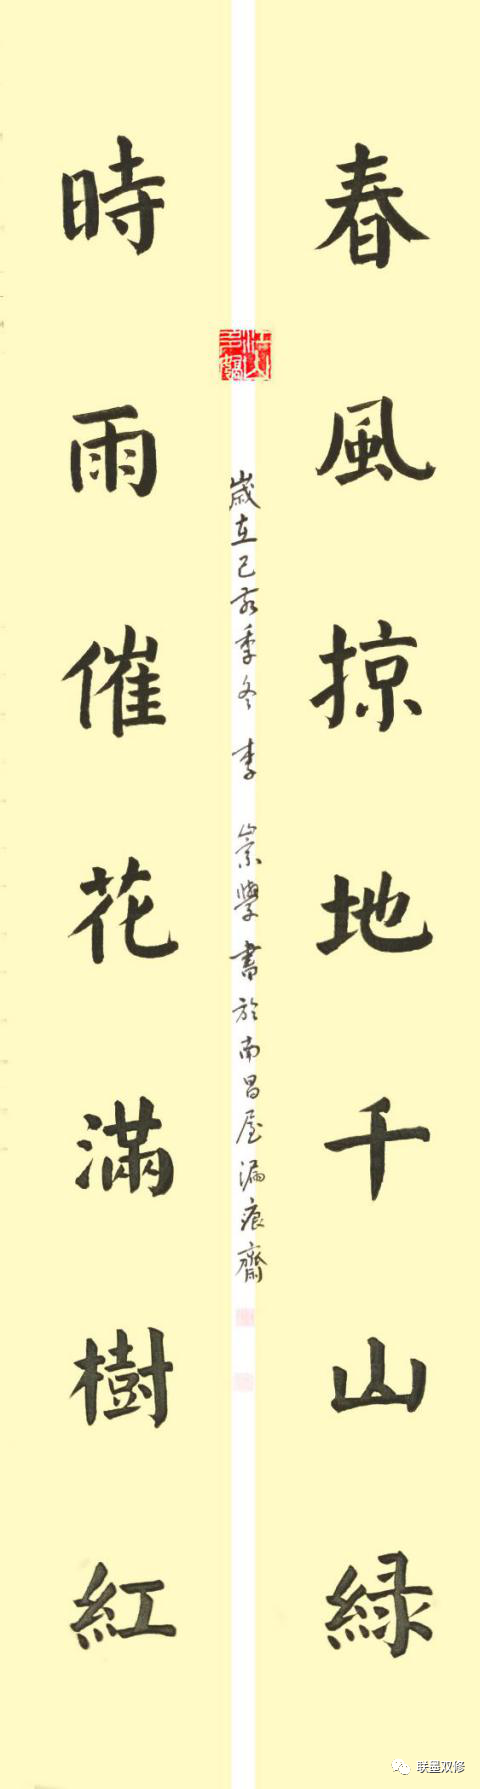 春風掠地千山綠
時雨催花滿樹紅
江山多嬌
歲在己亥季冬 李 崇學書於南昌屋漏痕齋
联墨双修